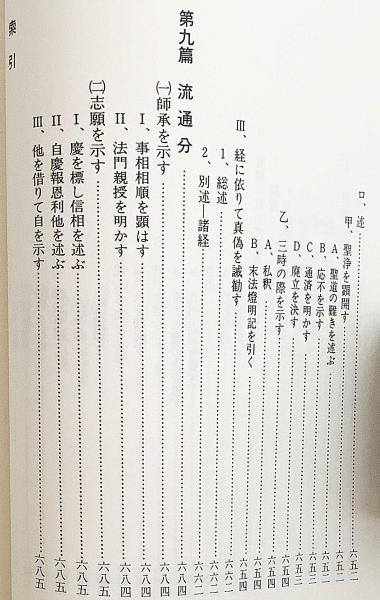 ロ、述
甲、聖浄を顕開す……六五二
A、聖道の難きを述ぶ……六五二
B、応不を示す……六五二
C、通済を明かす……六五二
D、廃立を決す……六五三
乙、三時の際を示す……六五四
A、私釈……六五四
B、末法燈明記を引く……六五四
Ⅲ、経に依りて真偽を誡勧す……六五四
1、総述……六六二
2、別述―諸経……六六二
第九篇 流通分……六八四
㈠師承を示す……六八四
Ⅰ、事相相順を顕はす……六八四
Ⅱ、法門親授を明かす……六八四
㈡志願を示す……六八五
Ⅰ、慶を標し信相を述ぶ……六八五
Ⅱ、自慶報恩利他を述ぶ……六八五
Ⅲ、他を借りて自を示す……六八五
索引